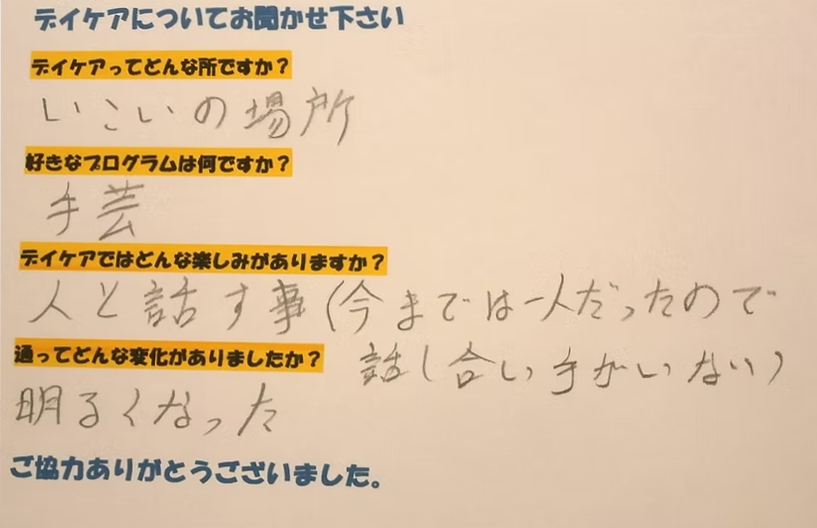 デイケアについてお聞かせ下さい
デイケアってどんな所ですか？
いこいの場所
好きなプログラムは何ですか？
手芸
デイケアではどんな楽しみがありますか？
人と話す事(今までは一人だったので
話し合い手がいない)
通ってどんな変化がありましたか？
明るくなった
ご協力ありがとうございました。